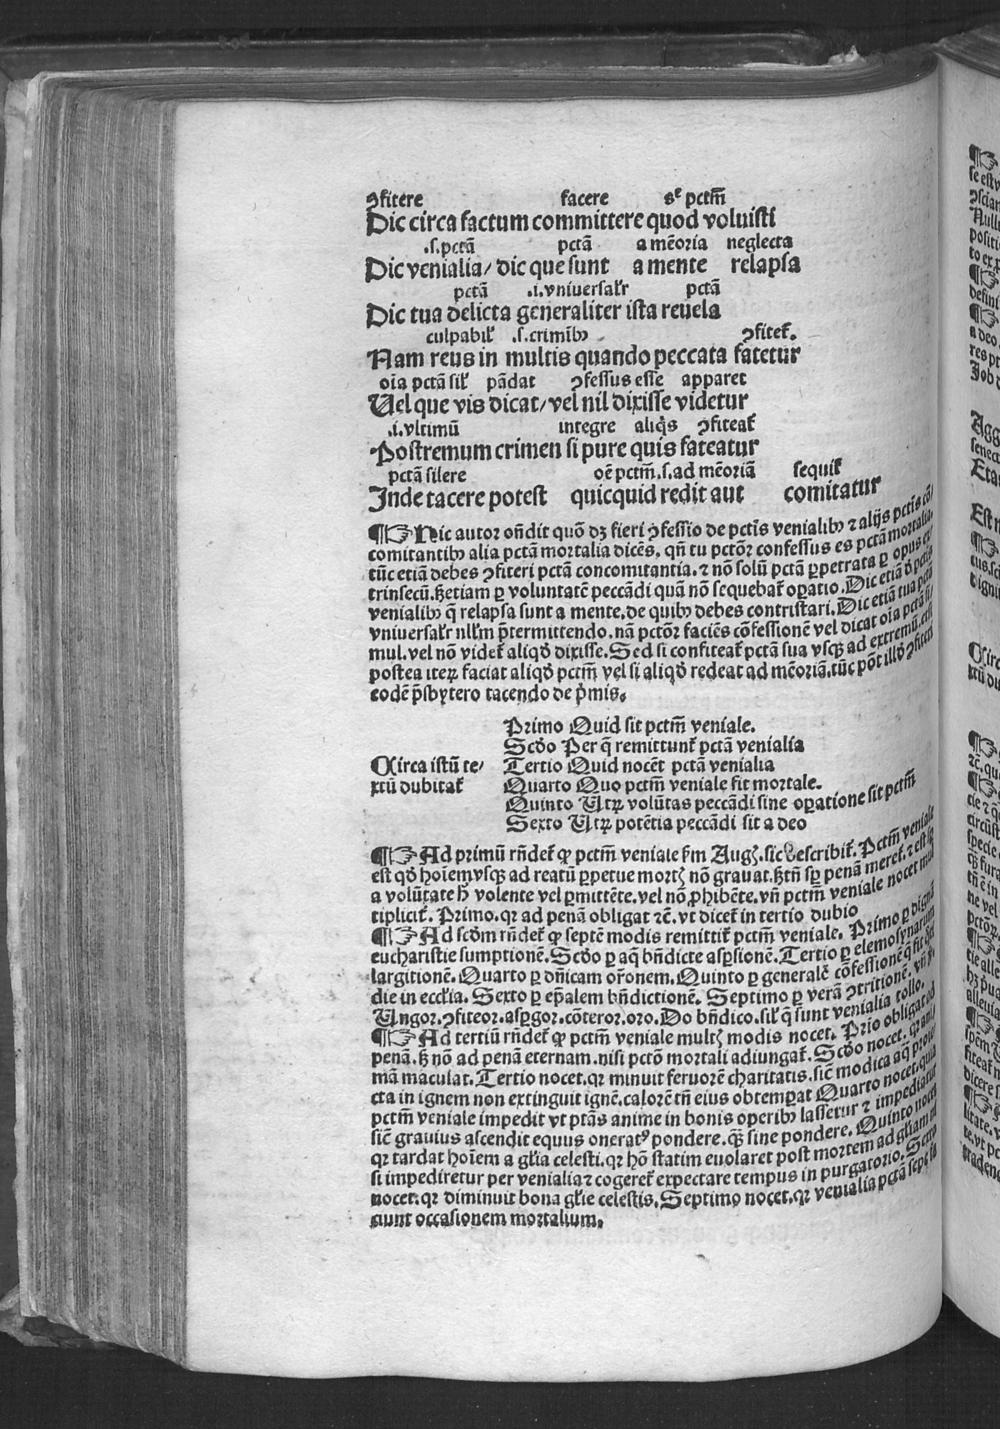 ꝯfitere facere sᵉ pctm̄
Dic circa factum committere quod voluisti
.s.pctā pctā a mēoria neglecta
Dic venialia/ dic que sunt a mente relapsa
pctā .i.vniuersalr̄ pctā
Dic tua delicta generaliter ista reuela
culpabil' .s.crimībꝰ ꝯfitet̄.
Nam reus in multis quando peccata fatetur
oīa pctā sil' pādat ꝯfessus esse apparet
Uel que vis dicat/ vel nil dixisse videtur
.i.vltimū integre aliq̄s ꝯfiteat̄
Postremum crimen si pure quis fateatur
pctā silere oē pctm̄.s.ad mēoriā sequit̄
Inde tacere potest quicquid redit aut comitatur
¶☞Hic autor on̄dit quō dꝫ fieri ꝯfessio de pctīs venialibꝰ ⁊ alijs pctīs cō/
comitantibꝰ alia pctā mortalia dicēs, qn̄ tu pctōꝝ confessus es pctā mortalia.
tūc etiā debes ꝯfiteri pctā concomitantia.⁊ nō solū pctā ꝑpetrata ꝑ opus ex/
trinsecū.sꝫ etiam ꝑ voluntatē peccādi quā nō sequebat̄ oꝑatio. Dic etiā ꝺ pctīs
venialibꝰ q̄ relapsa sunt a mente.de quibꝰ debes contristari. Dic etiā tua pctā
vniuersalr̄ nll'm p̄termittendo.nā pctōꝝ faciēs cōfessionē vel dicat oīa pctā si/
mul.vel nō videt̄ aliqd̄ dixisse. Sed si confiteat̄ pctā sua vsqꝫ ad extremū.etsi
postea iteꝝ faciat aliqd̄ pctm̄ vel si aliqd̄ redeat ad mēoriā.tūc pōt illd̄ ꝯfiteri
eodē p̄sbytero tacendo de p̄mis.
Primo Quid sit pctm̄ veniale.
Scd̄o Per q̄ remittunt̄ pctā venialia
Circa istū te/ Tertio Quid nocēt pctā venialia
xtū dubitat̄ Quarto Quo pctm̄ veniale fit mortale.
Quinto Utꝝ volūtas peccādi sine oꝑatione sit pctm̄
Sexto Utꝝ potētia peccādi sit a deo
¶☞Ad primū rn̄det̄ ꝙ pctm̄ veniale s̄m Augꝰ.sic describit̄. Pctm̄ veniale
est qd̄ hoīem vsqꝫ ad reatū ꝑpetue mortꝭ nō grauat.sꝫ tn̄ sꝑ penā meret̄.⁊ est
a volūtate h̄ volente vel ꝑmittēte.vel nō ꝓhibēte.vn̄ pctm̄ veniale nocet mul
tiplicit̄. Primo.qꝛ ad penā obligat ⁊c̄.vt dicet̄ in tertio dubio
¶☞Ad scd̄m rn̄det̄ ꝙ septē modis remittit̄ pctm̄ veniale. Primo ꝑ dignā
eucharistie sumptionē. Scd̄o ꝑ aq̄ bn̄dicte asꝑsionē. Tertio ꝑ elemosynarum
largitionē. Quarto ꝑ dn̄icam or̄onem. Quinto ꝑ generalē cōfessionē q̄ fit
die in eccl'ia. Sexto ꝑ ep̄alem bn̄dictionē. Septimo ꝑ verā ꝯtritionē. vn̄
Ungor.ꝯfiteor.asꝑgor.cōteror.oro. Do bn̄dico.sil' q̄ sunt venialia tollo.
¶☞Ad tertiū rn̄det̄ ꝙ pctm̄ veniale multꝭ modis nocet. Prio obligat ad
penā.sꝫ nō ad penā eternam.nisi pctō mortali adiungat̄. Scd̄o nocet.
mā maculat. Tertio nocet.qꝛ minuit feruorē charitatis.sic̄ modica aq̄
cta in ignem non extinguit ignē.calorē tn̄ eius obtemꝑat Quarto nocet.quia
pctm̄ veniale impedit vt ptās anime in bonis operibꝰ lassetur ⁊ impediatur
sic̄ grauius ascendit equus oneratꝰ pondere.qꝫ sine pondere. Quinto nocet
qꝛ tardat hoīem a gl'ia celesti.qꝛ hō statim euolaret post mortem ad gl'iam ni
si impediretur per venialia ⁊ cogeret̄ expectare tempus in purgatorio. Sexto
nocet.qꝛ diminuit bona gl'ie celestis. Septimo nocet.qꝛ venialia pctā sepe
niunt occasionem mortalium.